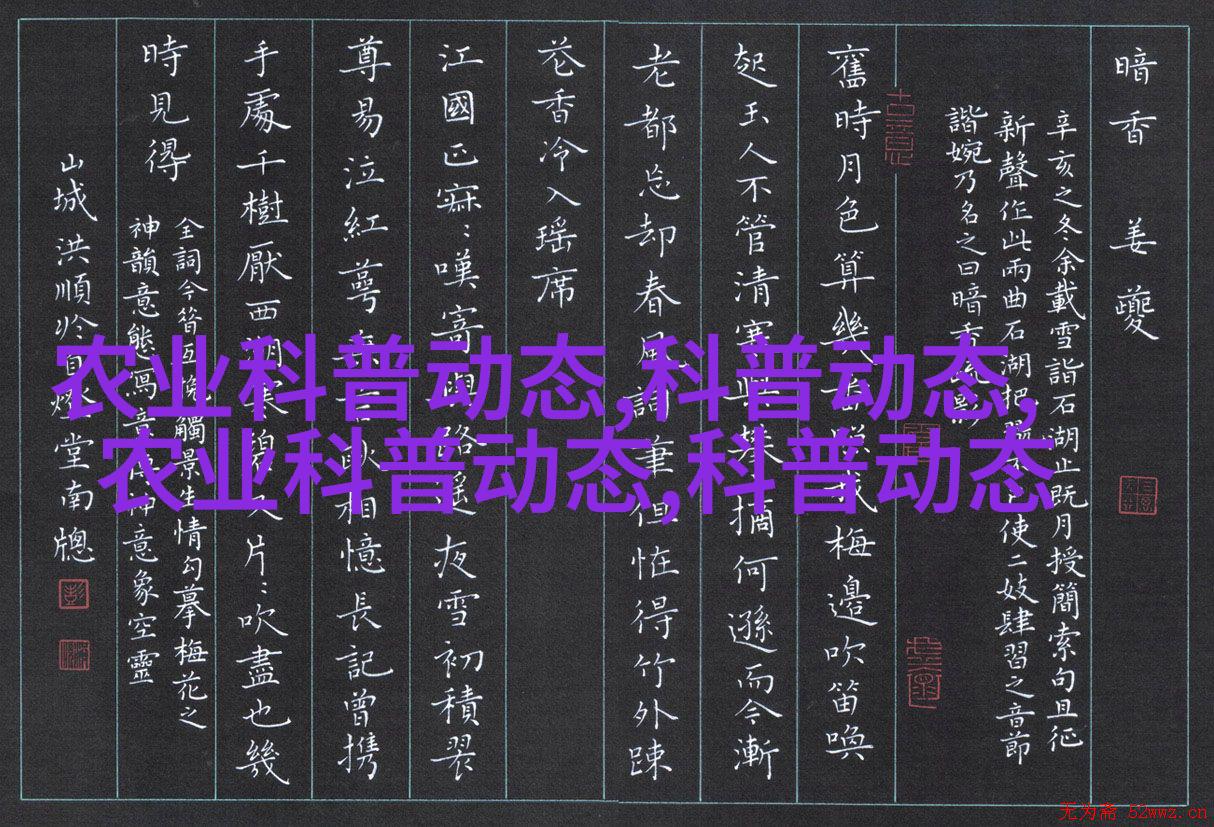 暗香 姜夔
辛亥之冬余載雪詣石湖止既月授簡索句且征
新聲作此兩曲石湖把使二妓肆習之音節
諧婉乃名之曰暗香
古意
舊時月色算幾梅邊吹笛喚
起玉人不管清寒與攀摘何遜而今漸
老都忘却春風詞筆但恠得竹外踈
花香冷入瑶席
江國正寂:嘆寄與路遥夜雪初積翠
尊易泣紅萼無言耿相憶長記曾携
手處千樹壓西湖寒碧又片:吹盡也幾
時見得
全詞今昔互換觸景生情勾摹梅花之
神韻意態寫意象空靈
山城洪順堂南牕
农业科普动态,科普动态,
农业科普动态,科普动态
无为斋 52wwz.cn